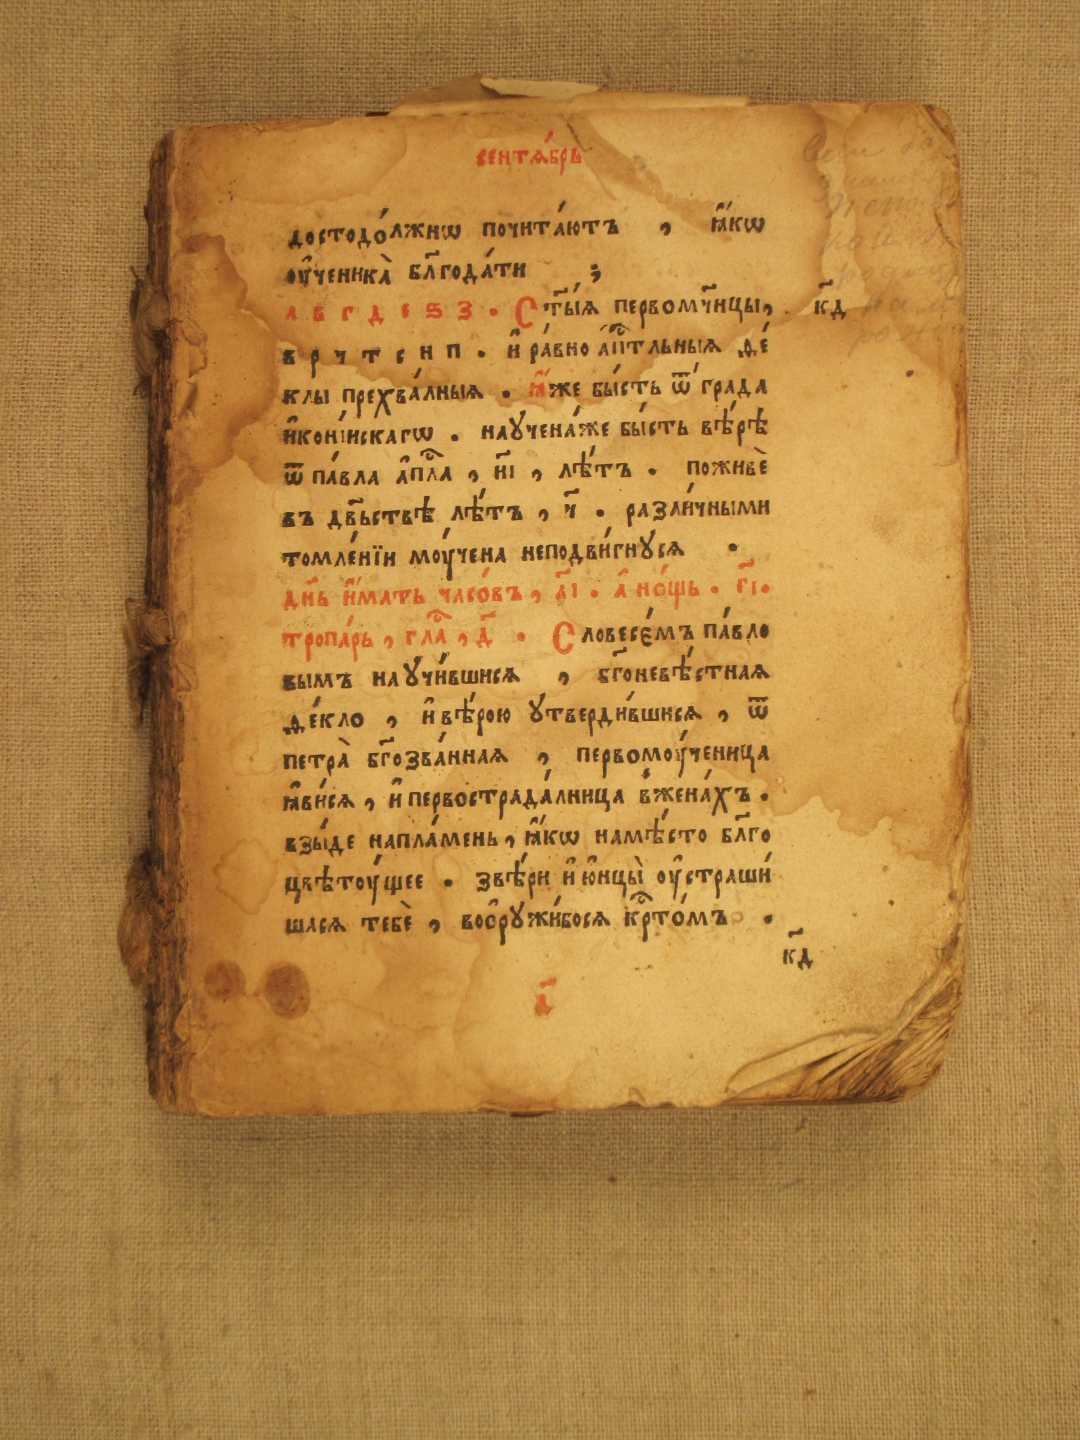 сентѧ́брь
достодо́лжнѡ почита́ютъ , ꙗ҆́кѡ
оу҆ченика̀ бл҃года́ти ;
а в г д е ѕ з . Ст҃ы́ѧ первомч҃ницы, . к҃д
в р ч т с н п . и҆ ра́вно а҆пⷭ҇тльныѧ ѳе́
клы прехва́лныѧ . ꙗ҆́же бы́сть ѿ гра́да
и҆коні́искагѡ . наꙋчена́же бы́сть вѣ́рѣ
ѿ па́вла а҆пⷭ҇ла , н҃і , лѣ́тъ . поживѐ
въ дв҃ьствѣ лѣ́тъ , ч҃ . разли́чными
томле́нїи моу́чена неподви́гнꙋсѧ .
дн҃ь и҆́мать часо́въ , а҃і . а҆ но́щь . г҃і .
тропа́рь , гла́ⷭ҇ , д҃ . Словесе́мъ па́вло
вымъ наꙋчи́вшисѧ , бг҃оневѣ́стная
ѳе́кло , и҆ вѣ́рою ꙋтверди́вшисѧ , ѿ
петра̀ бг҃озва́нная , первомоу́ченица
ꙗ҆ви́сѧ , и҆ первострада́лница в̾жена́хъ .
взы́де напла́мень , ꙗ҆́кѡ намѣ́сто бл҃го
цвѣтоу́щее . ѕвѣ́ри и҆ ю҆нцы̀ оу҆страши́
шасѧ тебѐ , воѻрꙋжи́босѧ крⷭ҇то́мъ .
к҃д